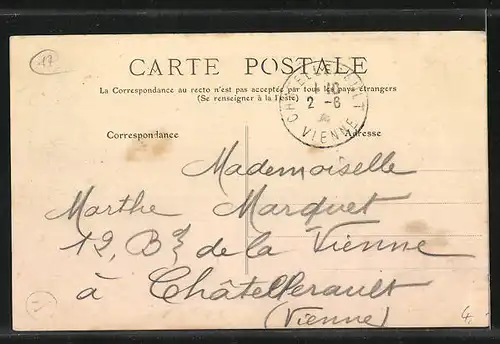 17
CARTE POSTALE
La Correspondance au recto n'est pas acceptée par tous les pays étrangers
(Se renseigner à la Poste)
CHATELLERAULT
10
2 -6
VIENNE
Correspondance
Adresse
Mademoiselle
Marthe Marquet
12, Bd de la Vienne
à Châtellerault
(Vienne)
4.